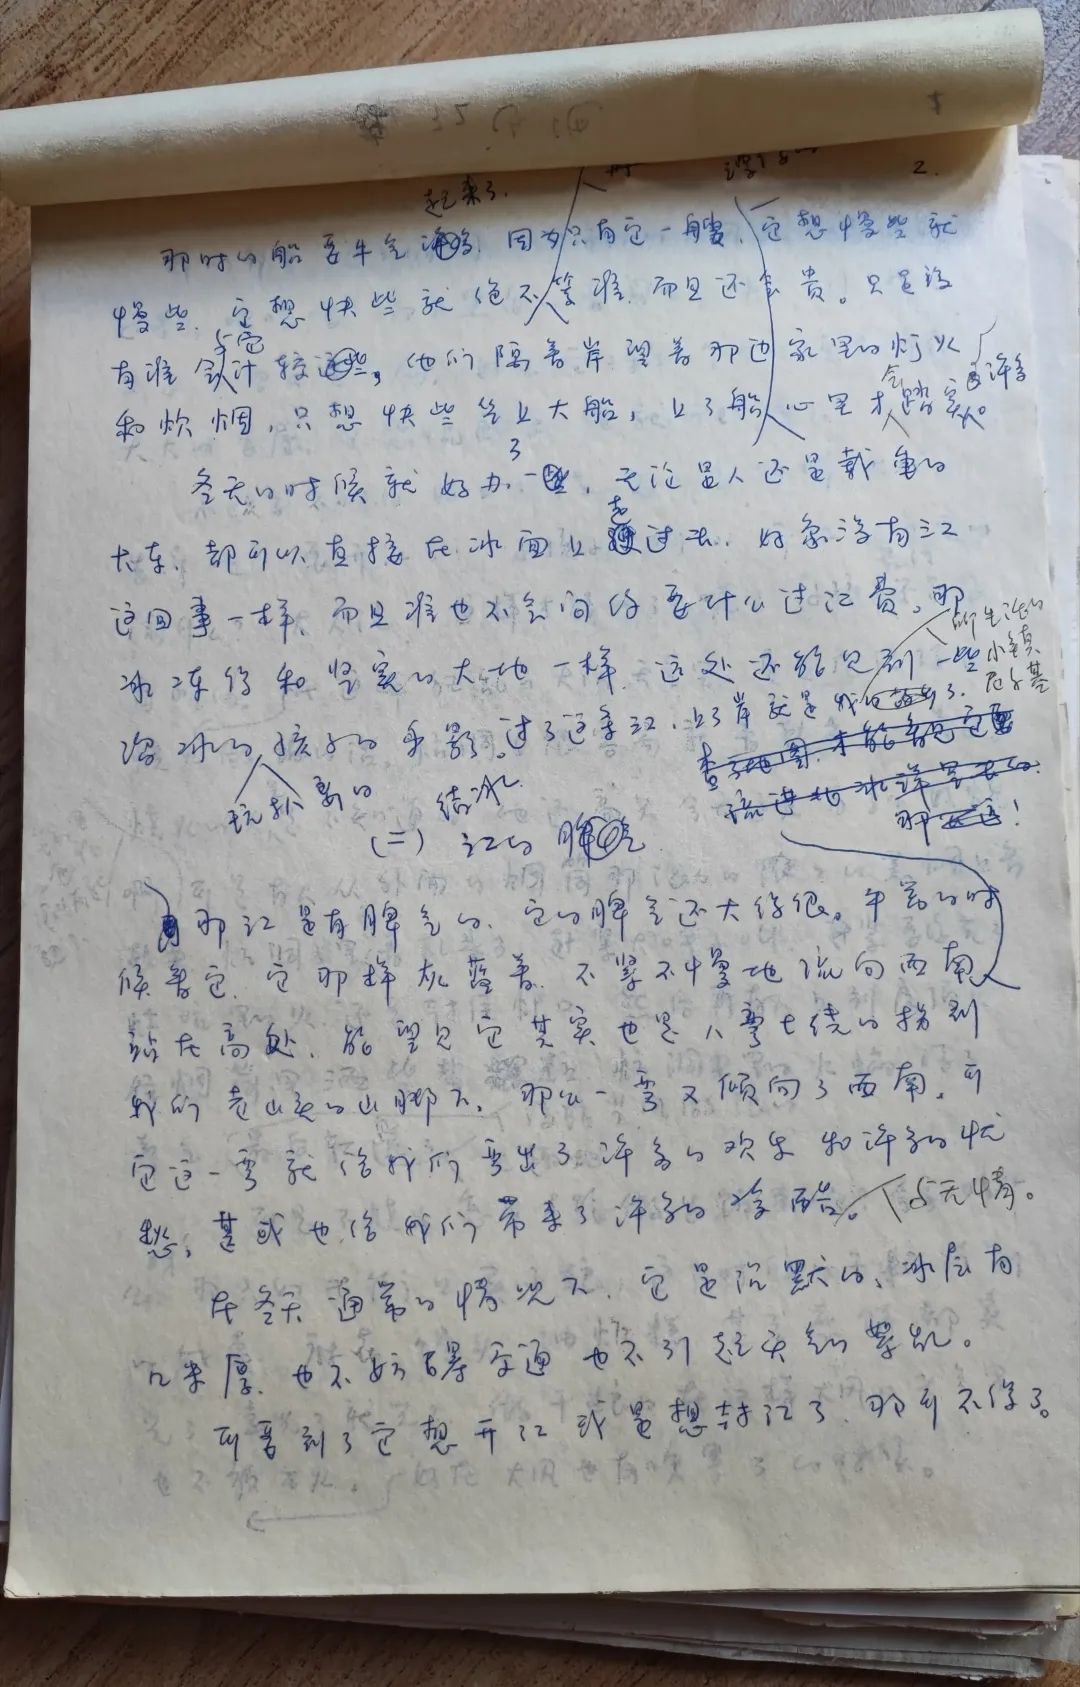 2.
起来了.
那时的船要牛气 因为只有它一艘、它想慢些就
慢些、它想快些就 绝不等谁、而且还 贵。只是没
与它
有谁会计较这些, 他们隔着岸望着那边家里的灯火
会 许多
和炊烟, 只想快些坐上大船, 上了船心里才踏实。
了
冬天的时候就好办一些, 无论是人还是载重的
走
大车、都可以直接在冰面上 过去、好象没有江
这回事一样、而且谁也不会问你要什么过江费。那
所生活的
小镇
冰冻得和坚实的大地一样、远处还能见到一些
溜冰的孩子的身影。过了这条江、上了岸就是我们 了.
玩扒犁的
结冰
查了地图、才能看见它
流进北冰洋里去的.
那 !
(二) 江的脾气
那江是有脾气的、它的脾气还大得很。平常的时
候看它、它那样灰蓝着、不紧不慢地流向西南、
站在高处、能望见它其实也是八弯七绕的拐到
我们老山头的山脚下、那么一弯又倾向了西南。可
它这一弯就给我们弯出了许多的欢乐和许多的忧
愁。甚或也给我们带来了许多的冷酷。与无情。
在冬天通常的情况下、它是沉默的、冰层有
几米厚、也不妨碍交通也不引起天气的紊乱。
可要到了它想开江或是想封江了、那可不得了。